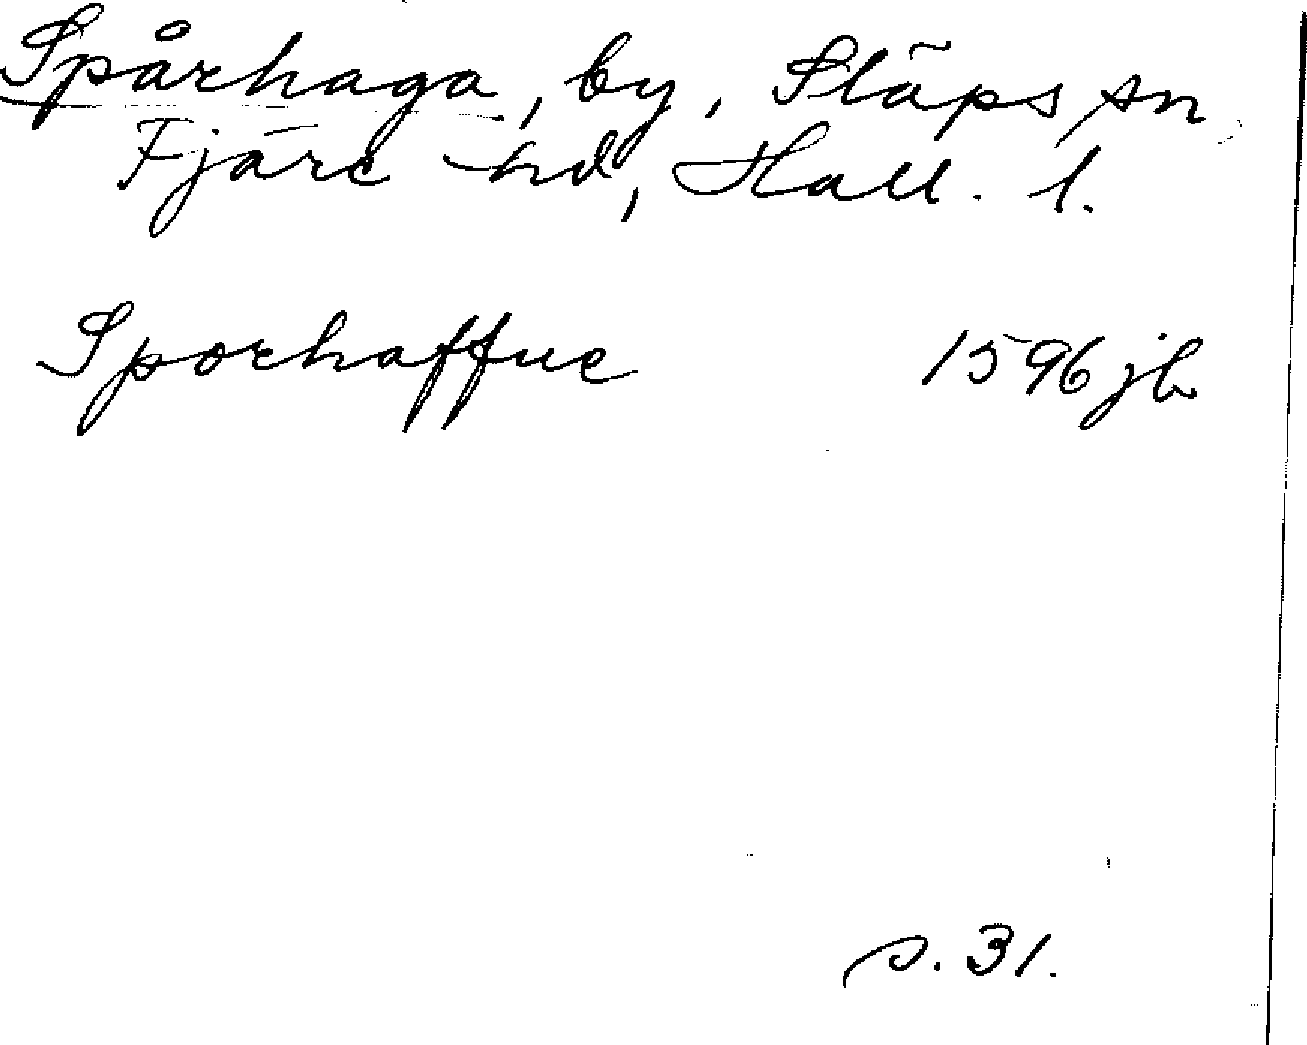 Spårhaga, by, Släps sn,
Fjäre hd, Hall. l.
Sporhaffue 1596 jb
s. 31.